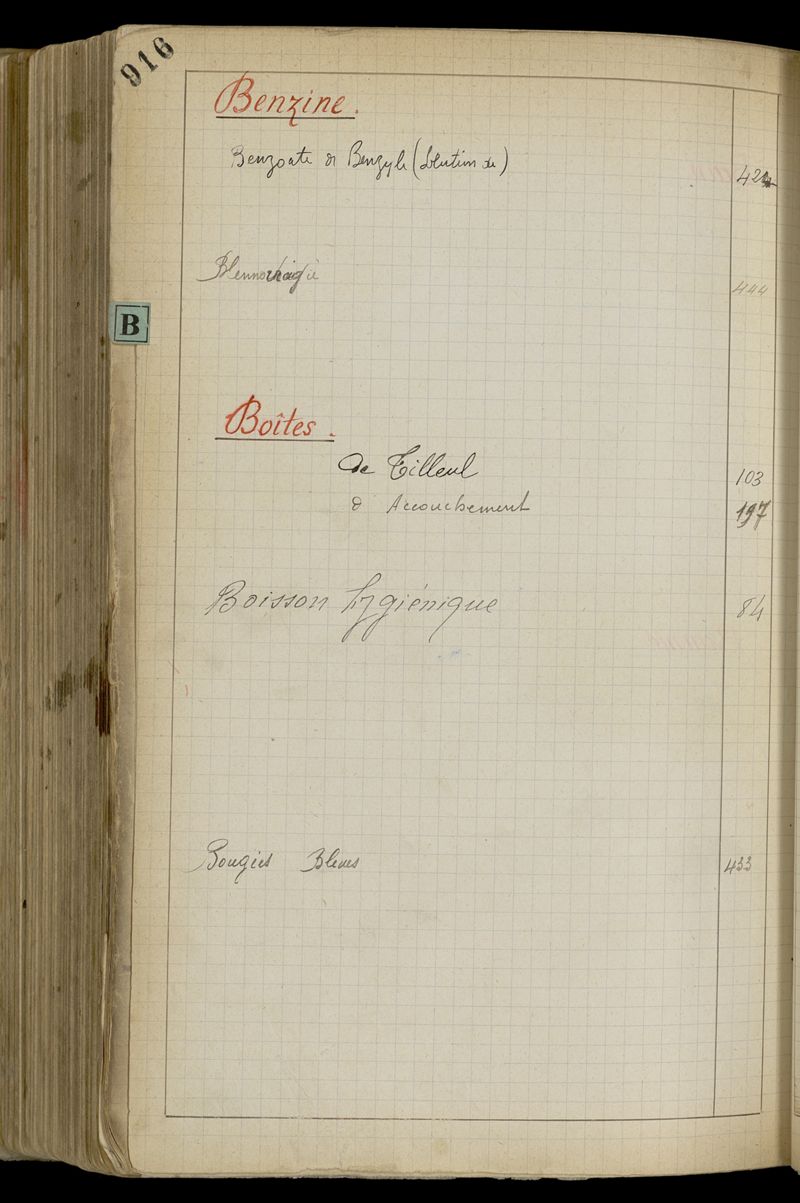 916
Benzine.
Benzoate de Benzyle (Solution de)
Blennorhagie 444
B
Boîtes.
de Tilleul 103
d'Accouchement 197
Boisson hygiénique 84
Bougies Bleues 433